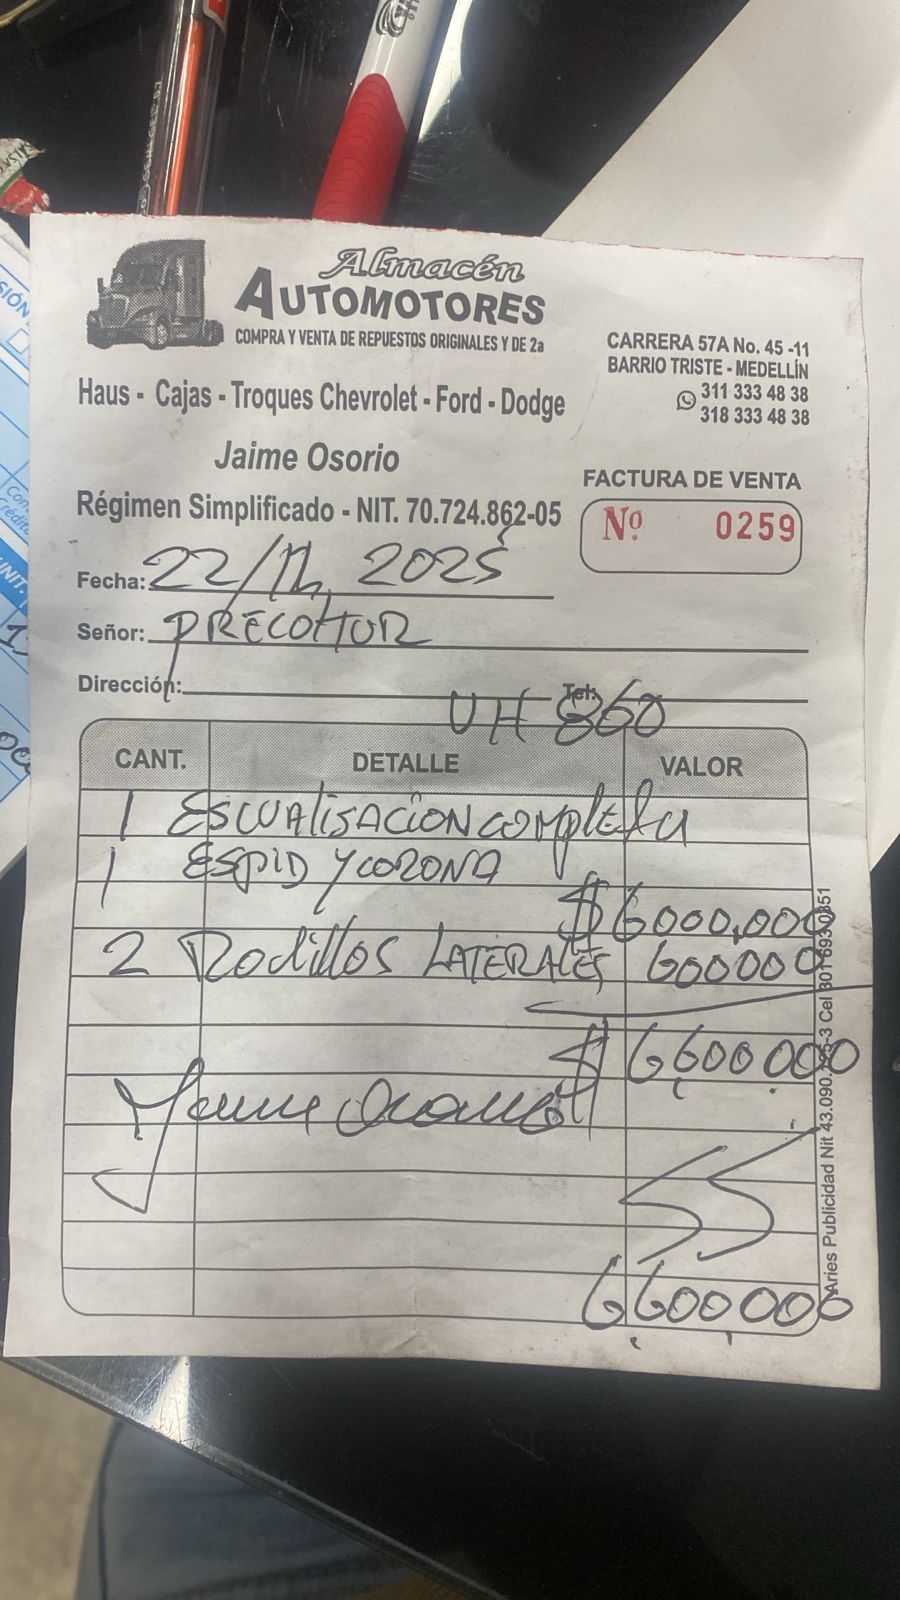 Almacén
AUTOMOTORES
COMPRA Y VENTA DE REPUESTOS ORIGINALES Y DE 2a
CARRERA 57A No. 45 -11
BARRIO TRISTE - MEDELLÍN
311 333 48 38
318 333 48 38
Haus - Cajas - Troques Chevrolet - Ford - Dodge
Jaime Osorio
Régimen Simplificado - NIT. 70.724.862-05
FACTURA DE VENTA
Nº 0259
Fecha: 22/11, 2025
Señor: PRECOMUR
Dirección: Tel:
UH 860
CANT. DETALLE VALOR
1 ESCUALISACION COMPLETA
1 ESPID Y CORONA
$ 6000,000
2 Rodillos LATERALES 600000
$ 6,600.000
6,600,000
Aries Publicidad Nit 43.090. Cel 301